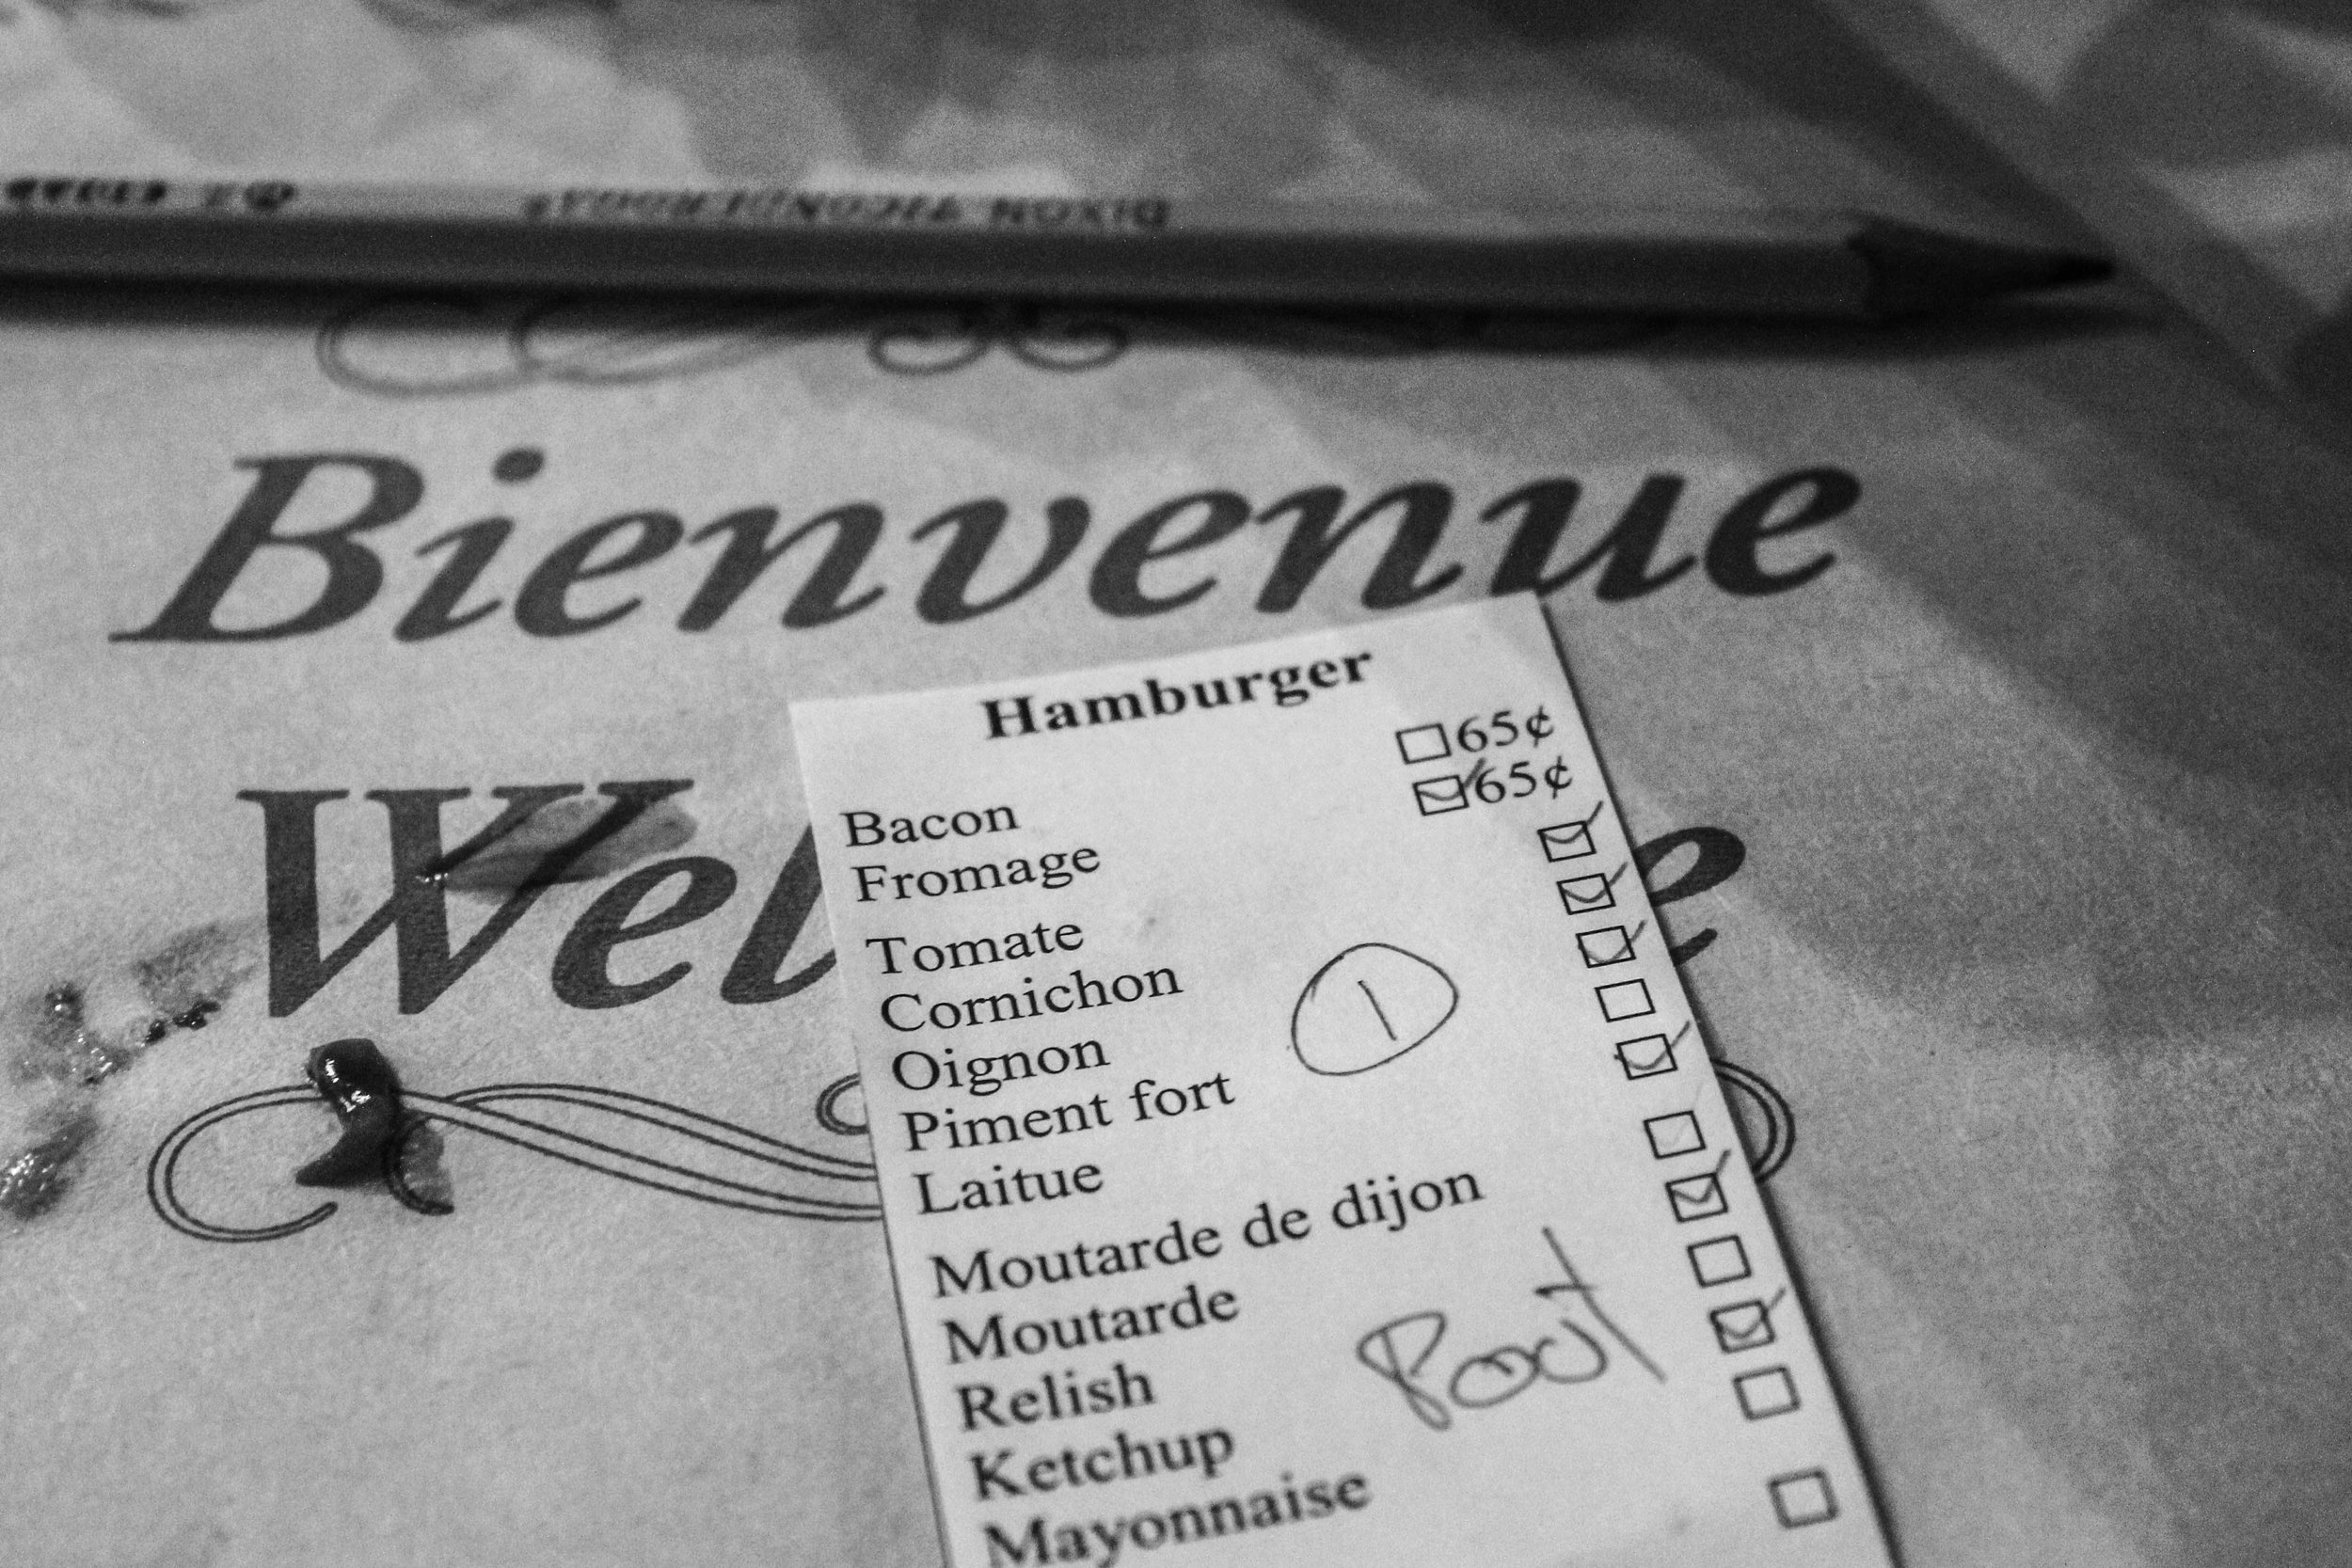 DIXON TICONDEROGA
Bienvenue
Wel e
Hamburger
Bacon 65¢
Fromage 65¢
Tomate
Cornichon
Oignon
1
Piment fort
Laitue
Moutarde de dijon
Moutarde
Relish
Ketchup
Mayonnaise